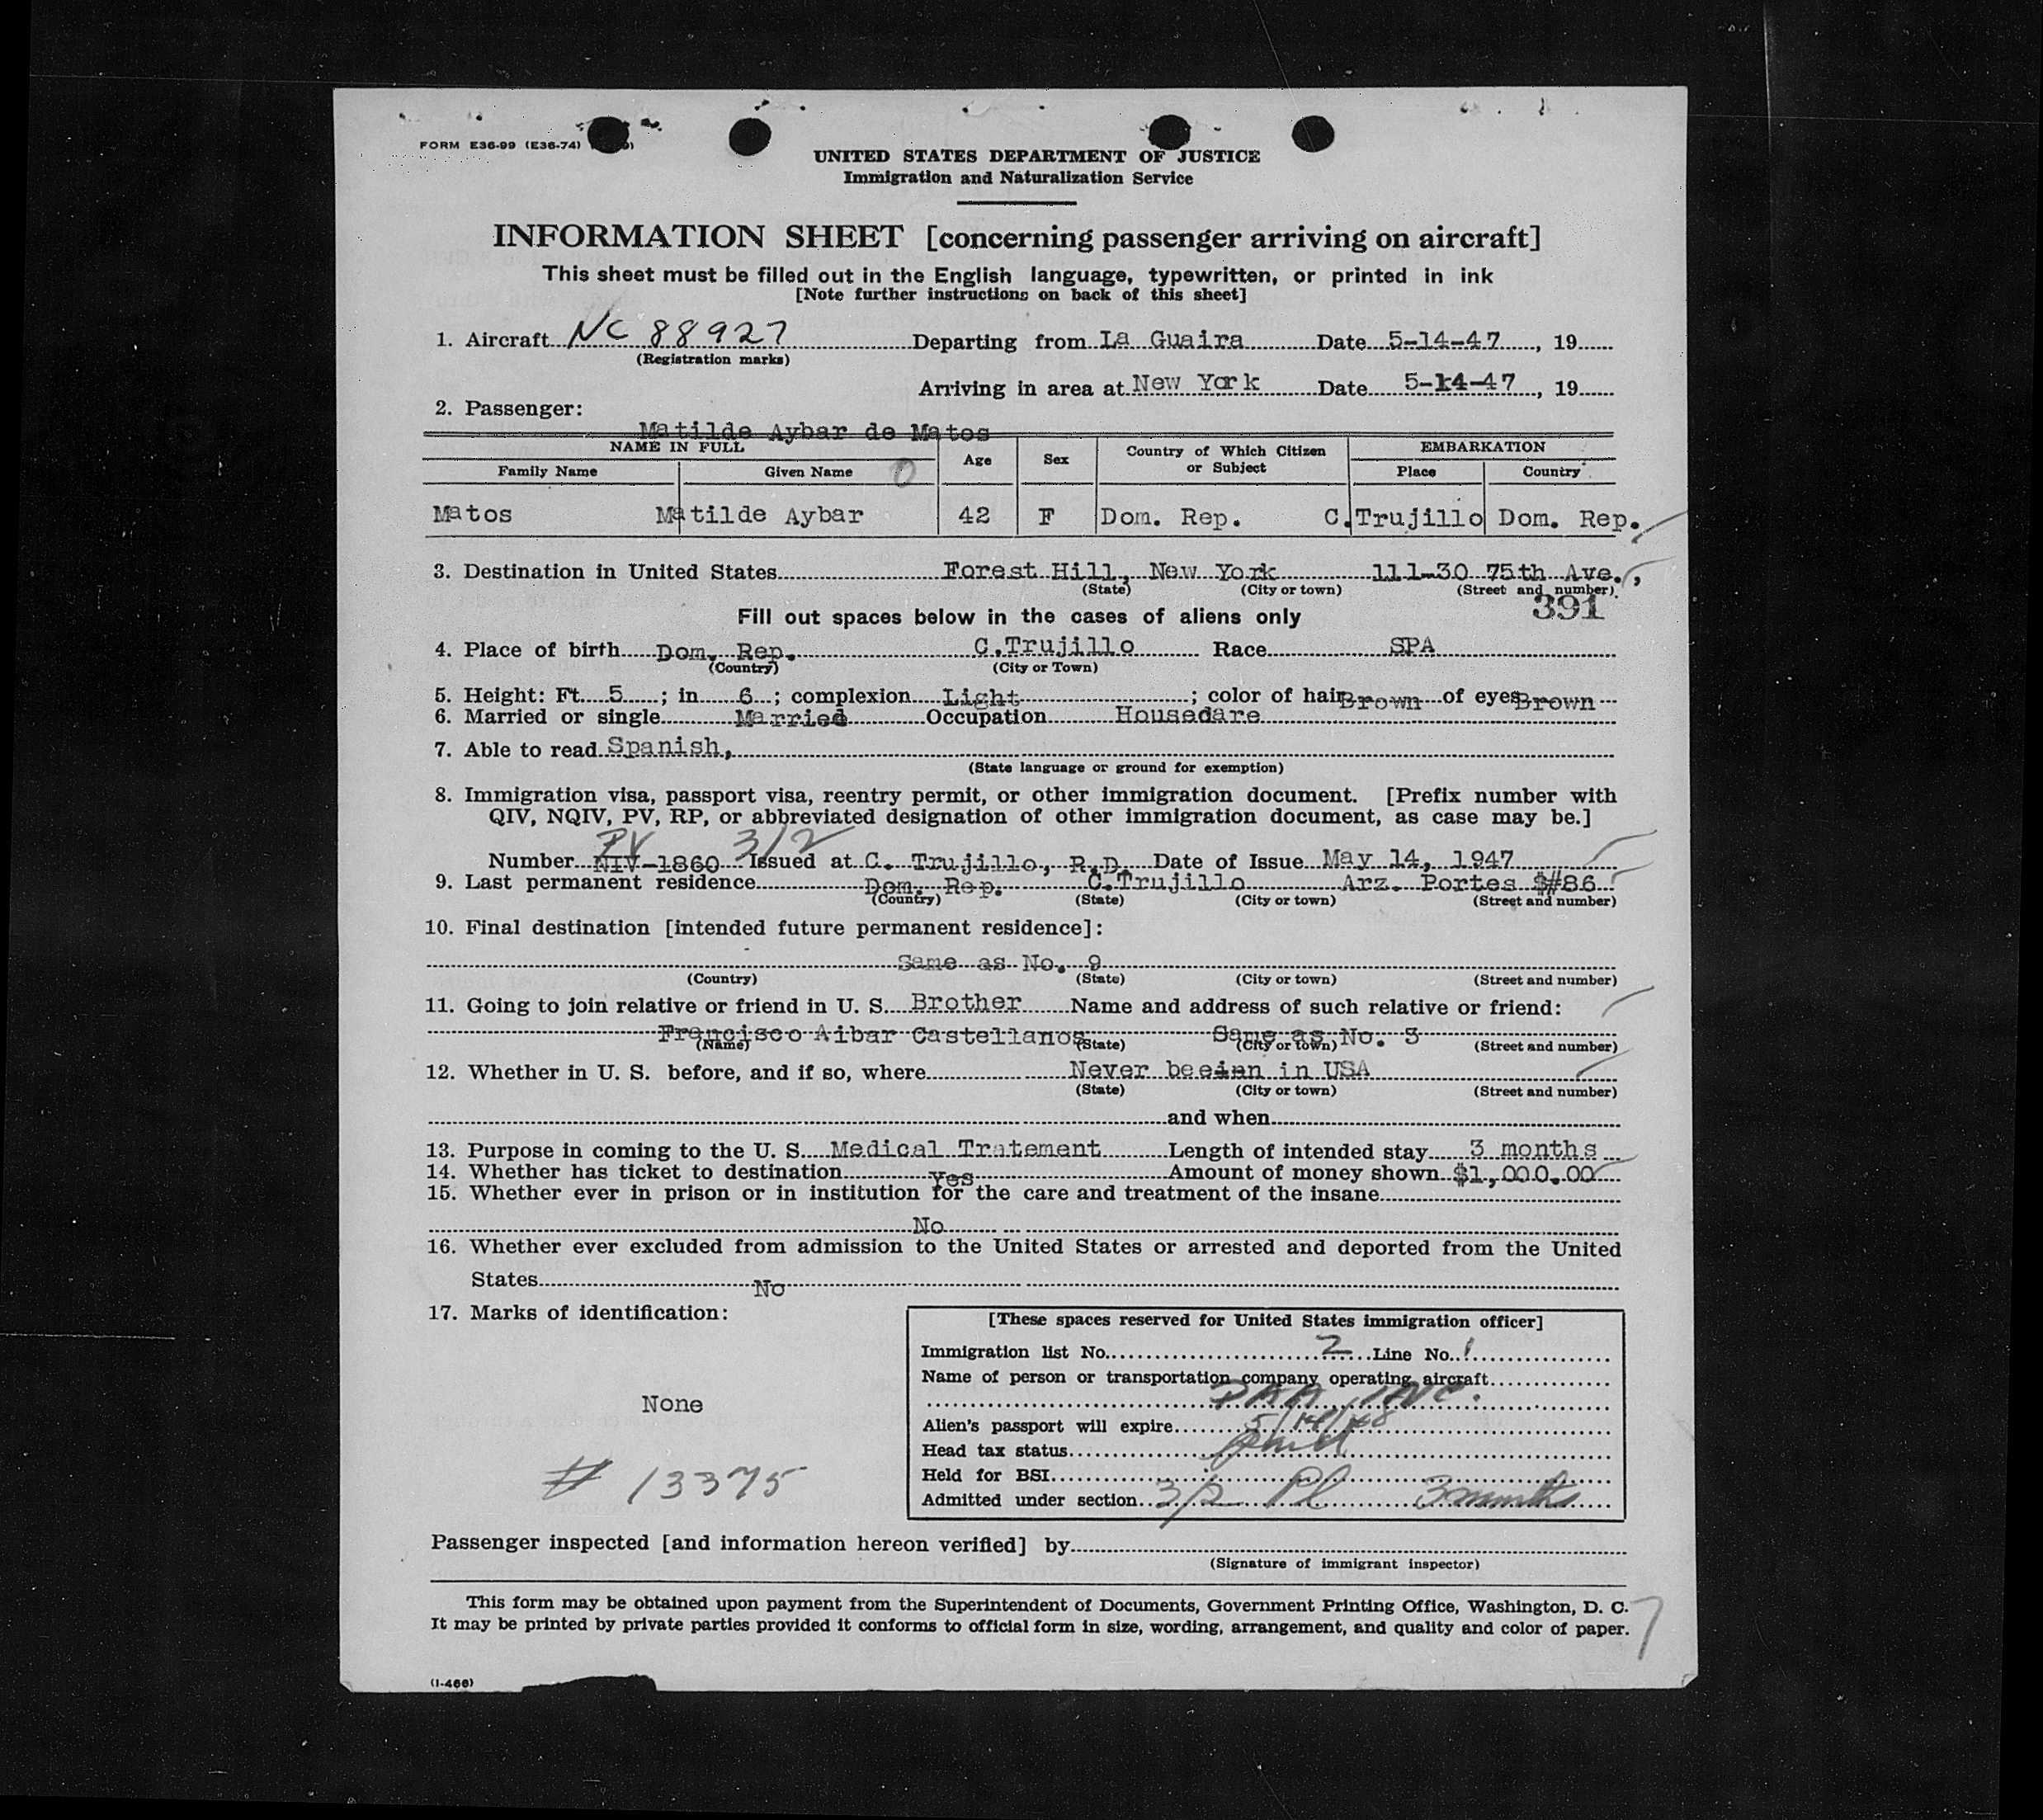 FORM E36-99 (E36-74)
UNITED STATES DEPARTMENT OF JUSTICE
Immigration and Naturalization Service
INFORMATION SHEET [concerning passenger arriving on aircraft]
This sheet must be filled out in the English language, typewritten, or printed in ink
[Note further instructions on back of this sheet]
1. Aircraft NC 88927 Departing from La Guaira Date 5-14-47, 19
(Registration marks)
Arriving in area at New York Date 5-14-47, 19
2. Passenger:
Matilde Aybar de Matos
NAME IN FULL Age Sex Country of Which Citizen or Subject EMBARKATION
Family Name Given Name Place Country
Matos Matilde Aybar 42 F Dom. Rep. C.Trujillo Dom. Rep.
3. Destination in United States Forest Hill, New York 111-30 75th Ave.,
(State) (City or town) (Street and number)
391
Fill out spaces below in the cases of aliens only
4. Place of birth Dom. Rep. C.Trujillo Race SPA
(Country) (City or Town)
5. Height: Ft. 5; in 6; complexion Light; color of hair Brown of eyes Brown
6. Married or single Married Occupation Housedare
7. Able to read Spanish,
(State language or ground for exemption)
8. Immigration visa, passport visa, reentry permit, or other immigration document. [Prefix number with
QIV, NQIV, PV, RP, or abbreviated designation of other immigration document, as case may be.]
PV 3/2
Number NIV-1860 Issued at C. Trujillo, R.D. Date of Issue May 14, 1947
9. Last permanent residence Dom. Rep. C.Trujillo Arz. Portes $#86
(Country) (State) (City or town) (Street and number)
10. Final destination [intended future permanent residence]:
Same as No. 9
(Country) (State) (City or town) (Street and number)
11. Going to join relative or friend in U. S. Brother Name and address of such relative or friend:
Francisco Aibar Castellanos Same as No. 3
(Name) (State) (City or town) (Street and number)
12. Whether in U. S. before, and if so, where Never beeian in USA
(State) (City or town) (Street and number)
and when
13. Purpose in coming to the U. S. Medical Tratement Length of intended stay 3 months
14. Whether has ticket to destination Yes Amount of money shown $1,000.00
15. Whether ever in prison or in institution for the care and treatment of the insane
No
16. Whether ever excluded from admission to the United States or arrested and deported from the United
States No
17. Marks of identification:
None
# 13375
[These spaces reserved for United States immigration officer]
Immigration list No. 2 Line No. 1
Name of person or transportation company operating aircraft
PAA INC.
Alien's passport will expire 5/14/48
Head tax status
Held for BSI
Admitted under section 3/2 Pl 3 months
Passenger inspected [and information hereon verified] by
(Signature of immigrant inspector)
This form may be obtained upon payment from the Superintendent of Documents, Government Printing Office, Washington, D. C.
It may be printed by private parties provided it conforms to official form in size, wording, arrangement, and quality and color of paper.
7
(I-466)